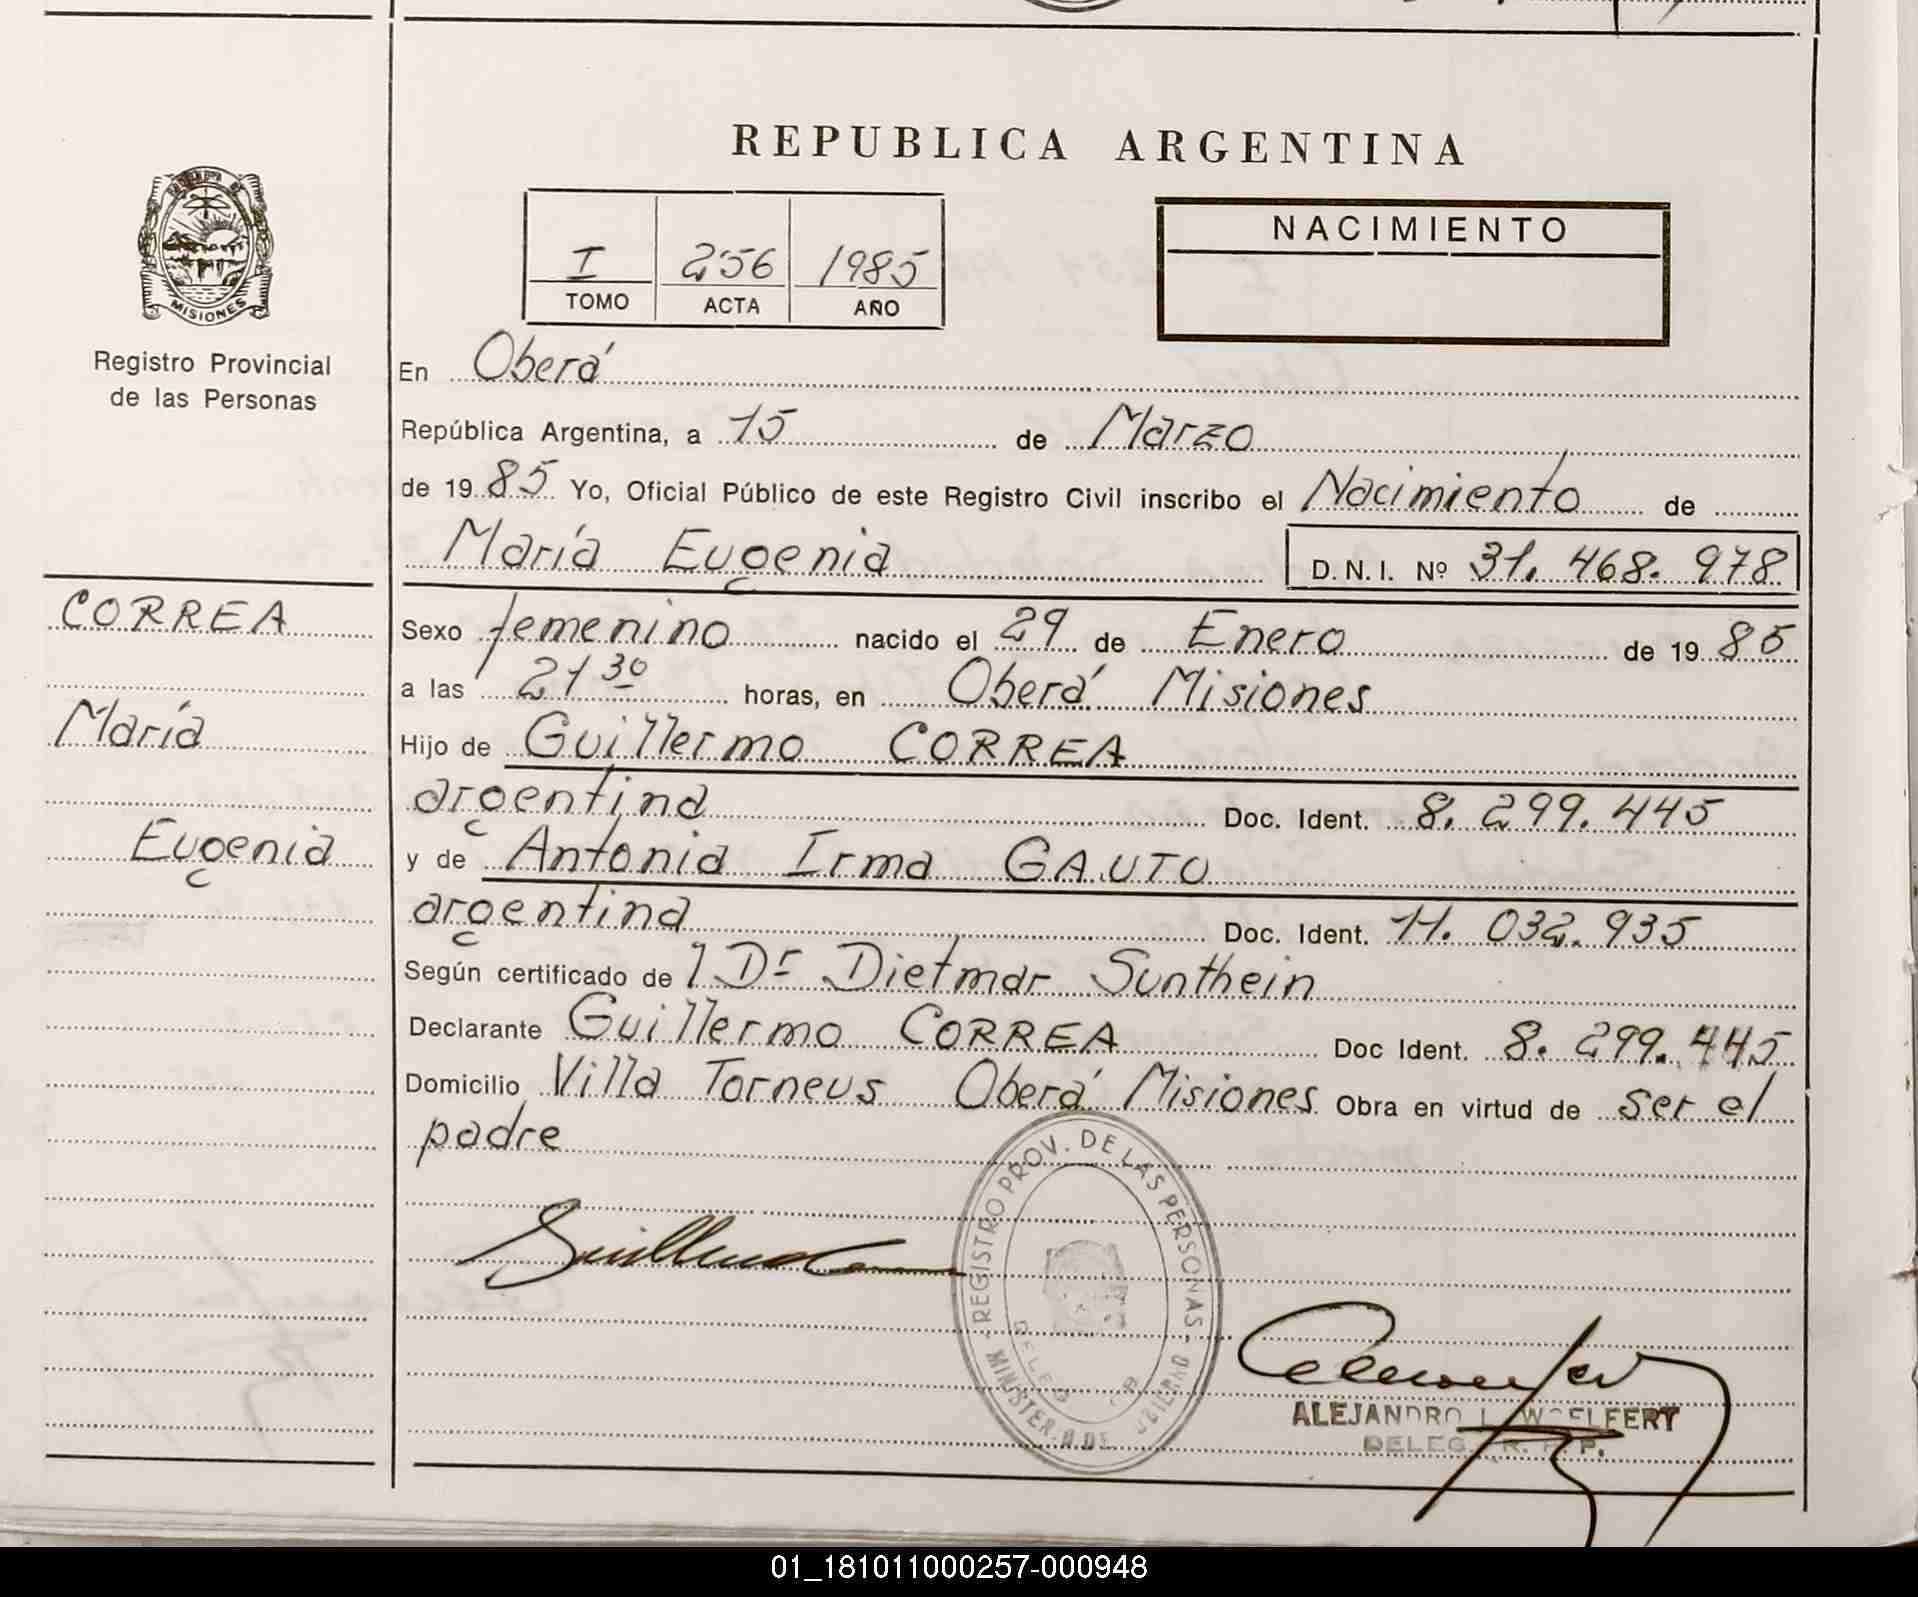 REPUBLICA ARGENTINA
NACIMIENTO
I 256 1985
TOMO ACTA AÑO
MISIONES
Registro Provincial
de las Personas
En Oberá
República Argentina, a 15 de Marzo
de 1985 Yo, Oficial Público de este Registro Civil inscribo el Nacimiento de
María Eugenia D.N.I. Nº 31.468.978
CORREA
María
Eugenia
Sexo femenino nacido el 29 de Enero de 1985
a las 21 30 horas, en Oberá Misiones
Hijo de Guillermo CORREA
argentina Doc. Ident. 8.299.445
y de Antonia Irma GAUTO
argentina Doc. Ident. 11.032.935
Según certificado de 1 Dr Dietmar Sunthein
Declarante Guillermo CORREA Doc Ident. 8.299.445
Domicilio Villa Torneus Oberá Misiones Obra en virtud de ser el
padre
REGISTRO PROV. DE LAS PERSONAS
ALEJANDRO L. WOELFERT
DELEG. R. P. P.
01_181011000257-000948